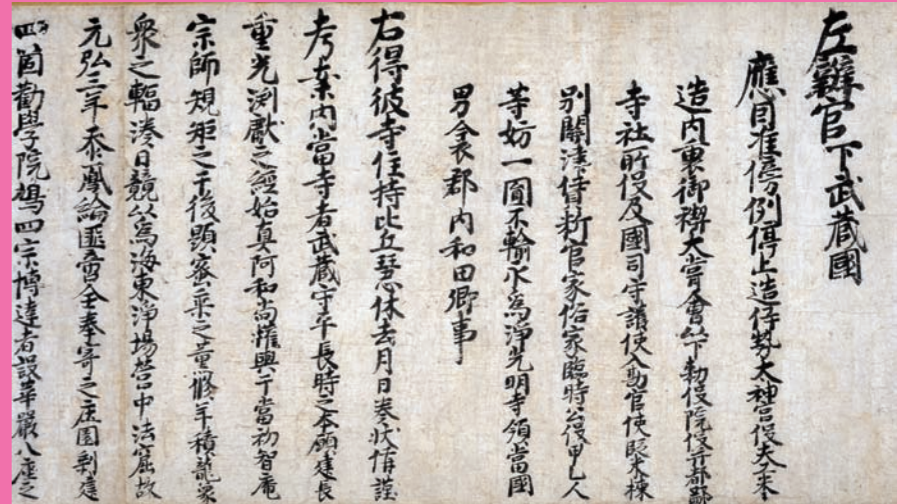 左辨官下武蔵國
應因准傍例停止造伊勢大神宮役夫米
造内裏御禊大甞會以下勅役院役并都鄙
寺社所役及國司守護使入勘官使醫大棟
別關津借新官家俗家臨時公役甲乙人
等妨一圓不輸永為淨光明寺領當國
男衾郡内和田郷事
右得彼寺住持比丘慈休去月日奏状偁謹
考案内當寺者武蔵守平長時之本願建長
重光渕獻之經始真阿和尚濫興于當初智庵
宗師規矩之于後顕密乗之薫修年積龍象
衆之輻湊日競以為海東淨場營中法窟故
元弘三年忝鳳綸匪啻全奉寄之庄園剰建
四箇勸學院鳩四宗博達者設華嚴八座之